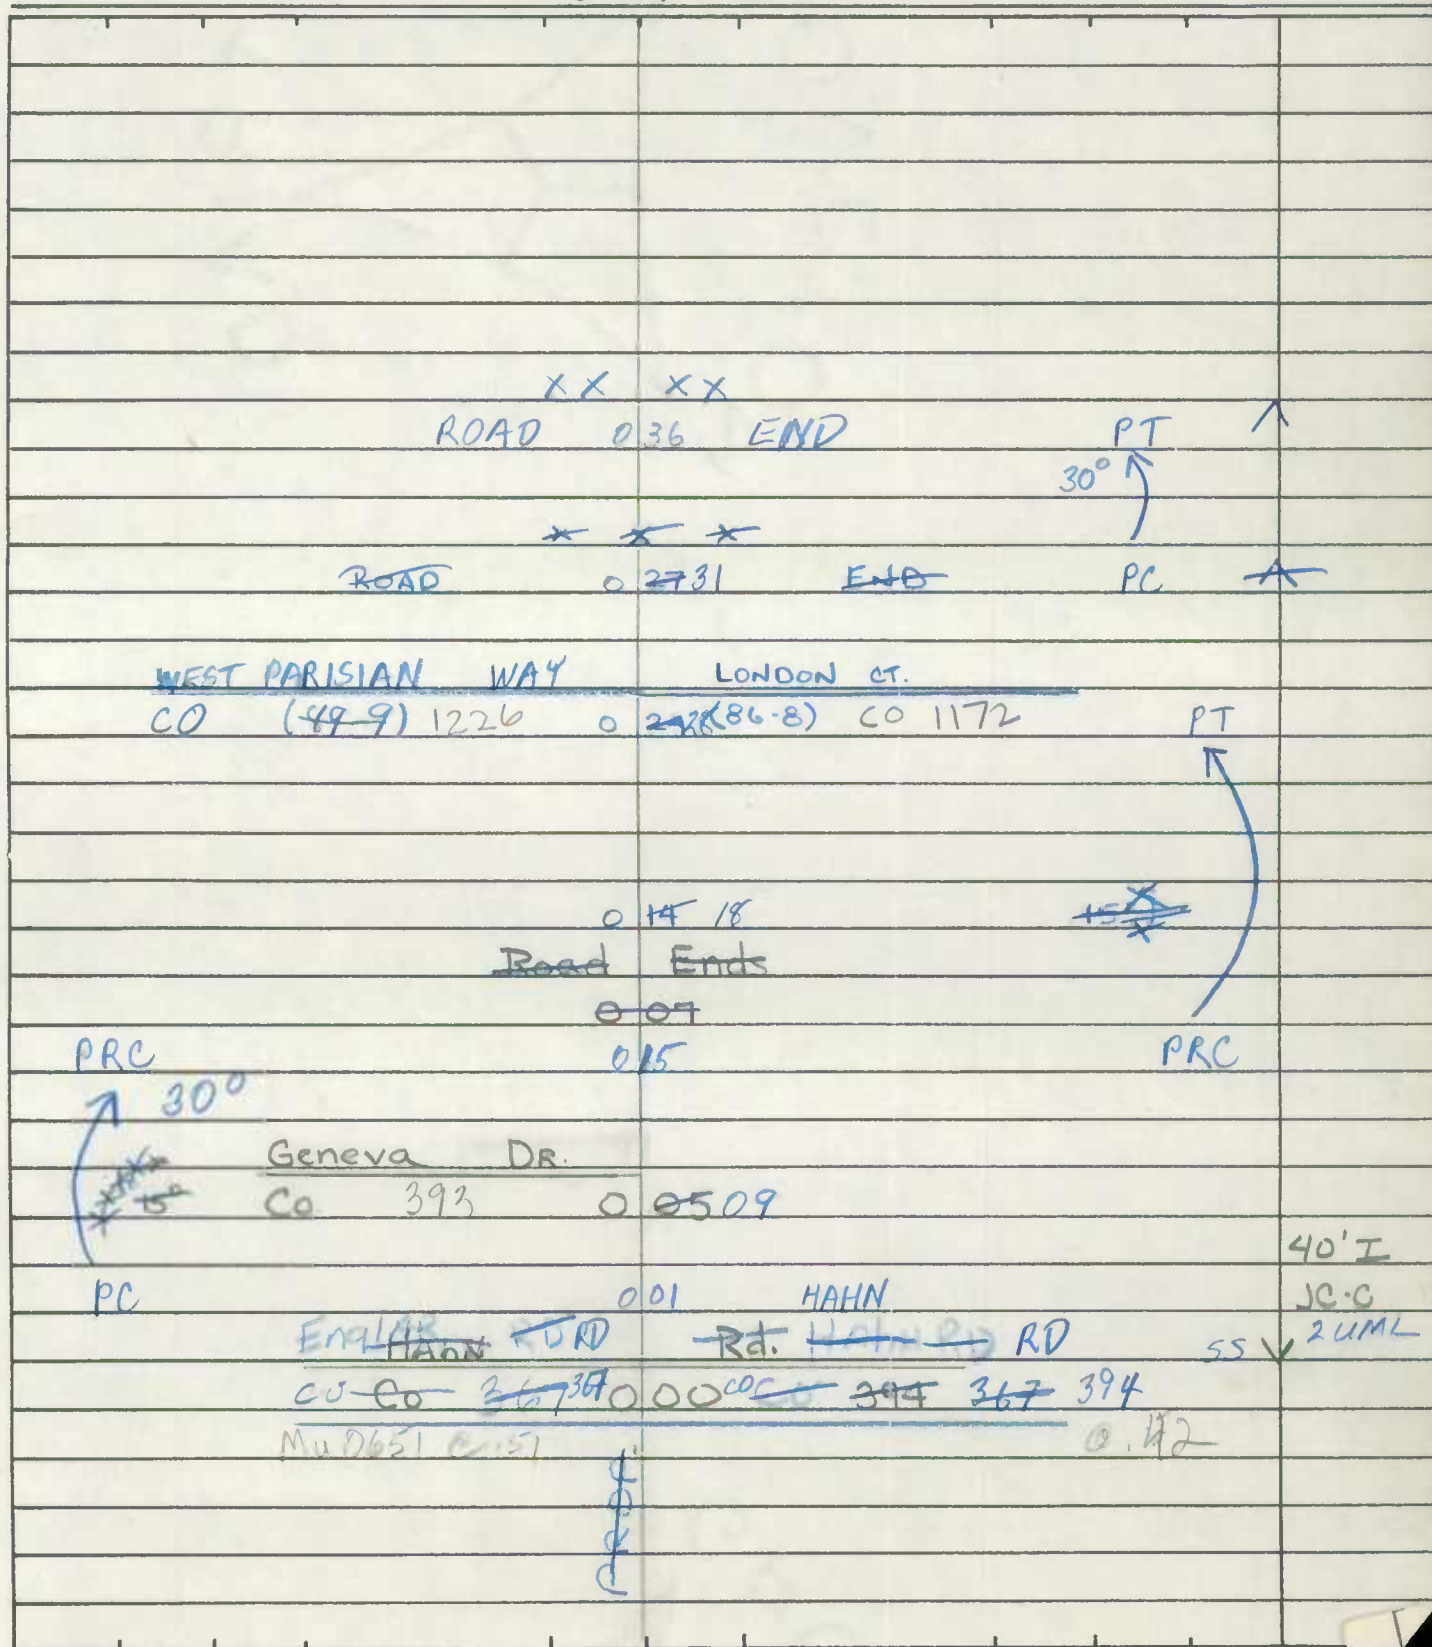 XX XX
ROAD 0 36 END PT
30°
x x x
ROAD 0 27 31 END PC
WEST PARISIAN WAY LONDON CT.
CO (49-9) 1226 0 28 (86-8) CO 1172 PT
0 14 18
Road Ends
0 07
PRC 0 15 PRC
30°
Geneva DR.
Co 393 0 05 09
40' I
PC 0 01 HAHN JC-C
Englar HAHN RD RD Rd. Hahn RD RD SS 2 UML
CO Co 367 367 0 00 CO CO 394 367 394
Mu 0651